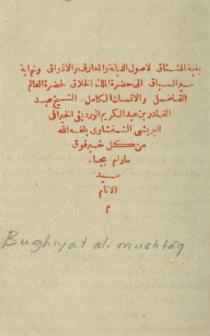 بغية المشتاق لأصول الديانة والمعارف والأذواق ونهاية
سير السباق الى حضرة الملك الخلاق لحضرة العالم
الفاضل والانسان الكامل الشيخ عبد
القادر بن عبد الكريم الورديفي الخيراني
البريشي الشفشاوني بلغه الله
من كل خير فوق
مارام بجاه
سيد
الانام
م
Bughiyat al-muchtāq